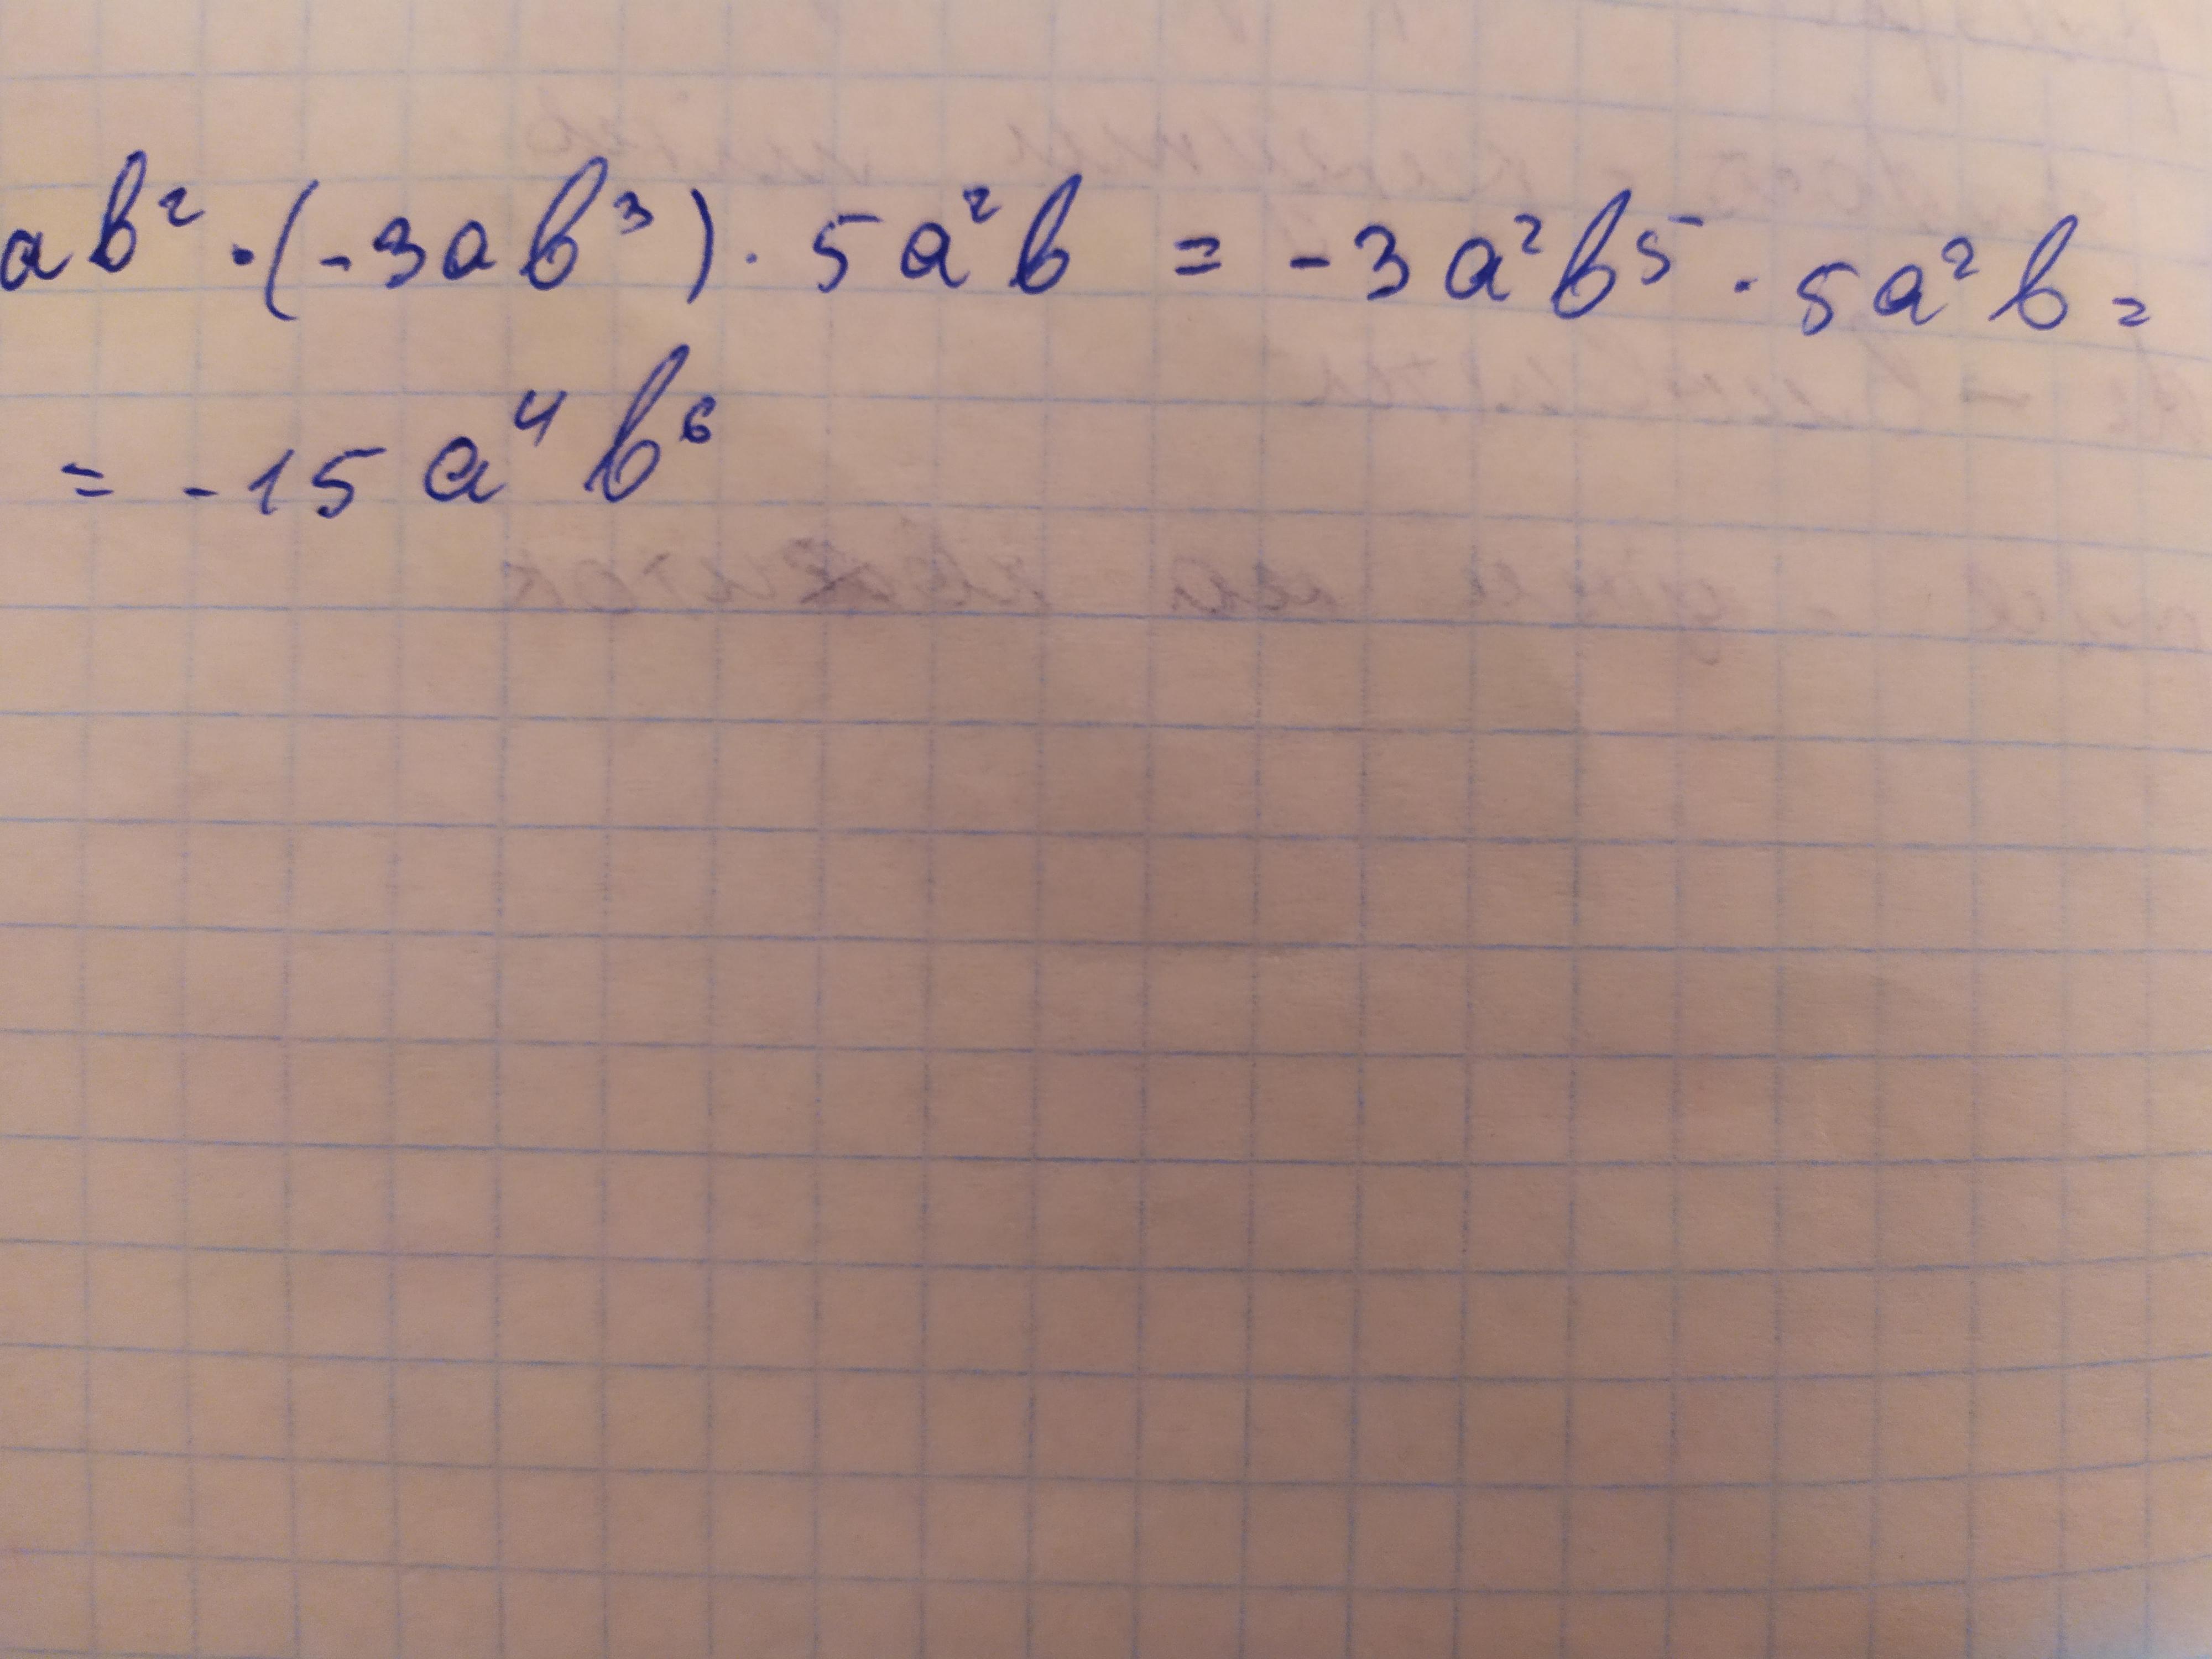 ab² · (-3ab³) · 5a²b = -3a²b⁵ · 5a²b =
= -15a⁴b⁶